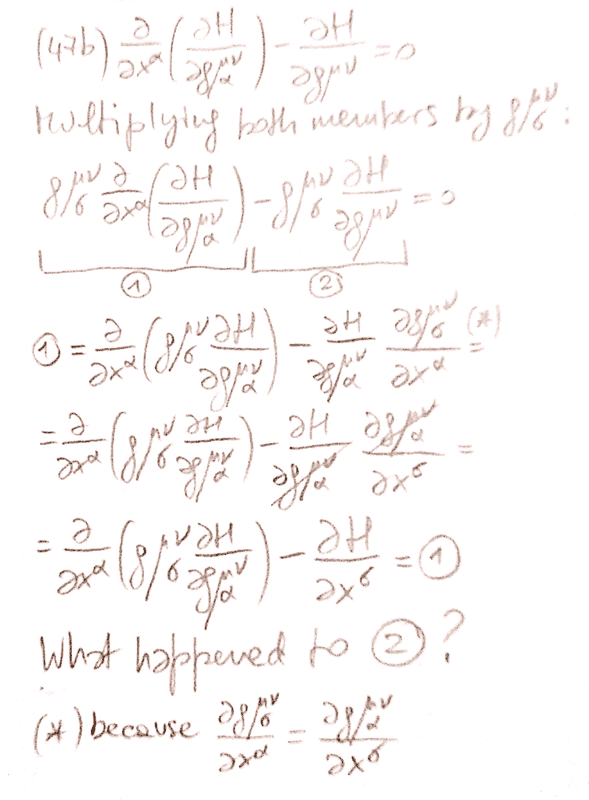 (47b) ∂/∂x^α (∂H/∂g^μν_α) − ∂H/∂g^μν = 0
Multiplying both members by g^μν_σ:
g^μν_σ ∂/∂x^α (∂H/∂g^μν_α) − g^μν_σ ∂H/∂g^μν = 0
① ②
① = ∂/∂x^α (g^μν_σ ∂H/∂g^μν_α) − ∂H/∂g^μν_α ∂g^μν_σ/∂x^α (*)=
= ∂/∂x^α (g^μν_σ ∂H/∂g^μν_α) − ∂H/∂g^μν_α ∂g^μν_α/∂x^σ =
= ∂/∂x^α (g^μν_σ ∂H/∂g^μν_α) − ∂H/∂x^σ = ①
What happened to ②?
(*) because ∂g^μν_σ/∂x^α = ∂g^μν_α/∂x^σ